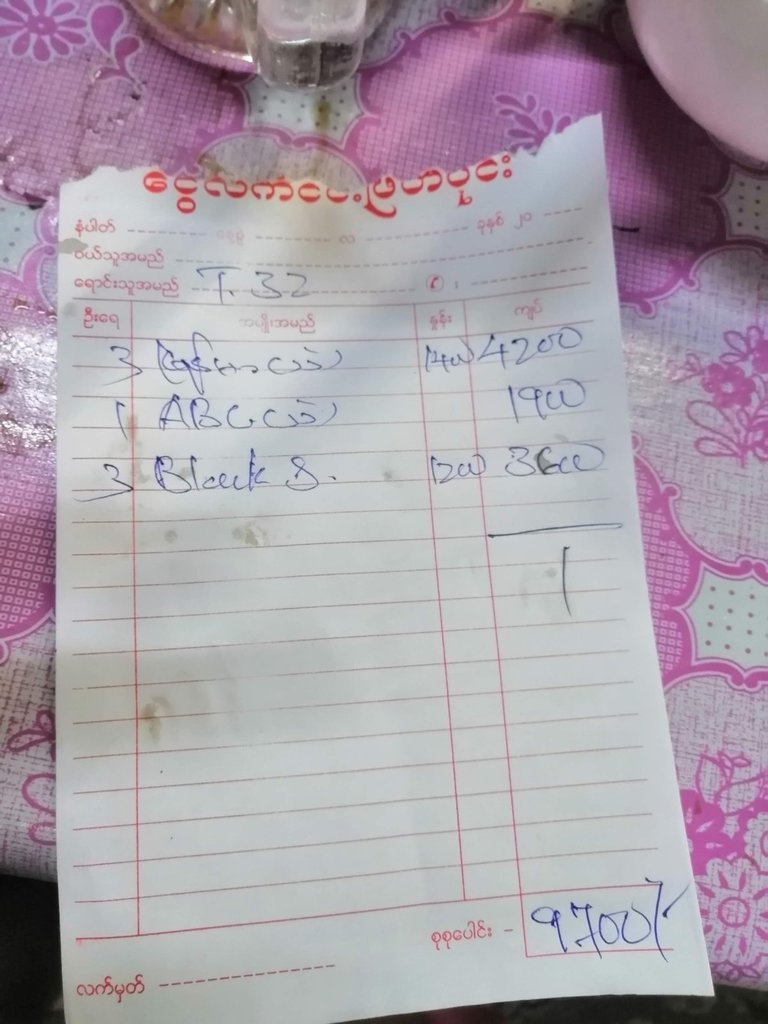 ငွေလက်ခံပေးဖြတ်ပိုင်း
နံပါတ် နေ့စွဲ လ ခုနှစ် ၂၀
ဝယ်သူအမည်
ရောင်းသူအမည် T. 32
ဦးရေ အမျိုးအမည် နှုန်း ကျပ်
3 1400 4200
1 ABC 1900
3 Black S. 1200 3600
စုစုပေါင်း - 9700/-
လက်မှတ်